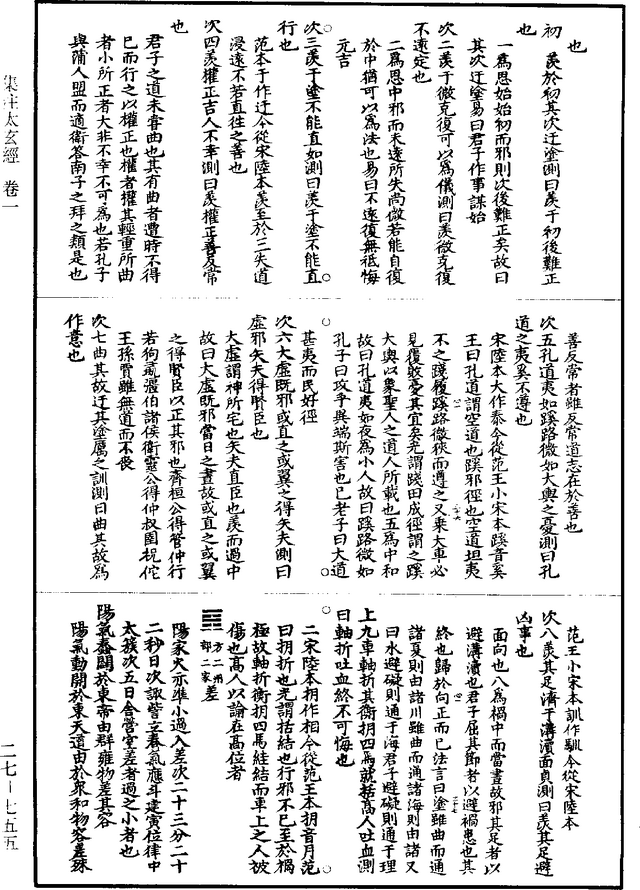 也
初 羨於初其次迂塗測曰羨于初後難正
也
一為思始始初而邪則次後難正矣故曰
其次迂塗易曰君子作事謀始
次二羨于微克復可以為儀測曰羨微克復
不遠定也
二為思中邪而未遠所失尚微若能自復
於中猶可以為法也易曰不遠復無祗悔
元吉
次三羨于塗不能直如測曰羨于塗不能直
行也
范本于作迂今從宋陸本羨至於三失道
浸遠不若直往之善也
次四羨權正吉人不幸測曰羨權正善反常
也
君子之道未嘗曲也其有曲者遭時不得
已而行之以權正也權者權其輕重所曲
者小所正者大非不幸不可為也若孔子
與蒲人盟而適衛答南子之拜之類是也
善反常者雖反常道志在於善也
次五孔道夷如蹊路微如大輿之憂測曰孔
道之夷奚不遵也
宋陸本大作泰今從范王小宋本蹊音奚
王曰孔道謂空道也蹊邪徑也空道坦夷
不之踐履蹊路微狹而遵之又乘大車必
見覆敗憂其宜矣光謂踐田成徑謂之蹊
大輿以象聖人之道人所載也五為中和
故曰孔道夷如夜為小人故曰蹊路微如
孔子曰攻乎異端斯害也已老子曰大道
甚夷而民好徑
次六大虛既邪或直之或翼之得矢夫測曰
虛邪矢夫得賢臣也
大虛謂神所宅也矢夫直臣也羨而過中
故曰大虛既邪當日之晝故或直之或翼
之得賢臣以正其邪也齊桓公得管仲行
若狗彘霸伯諸侯衛靈公得仲叔圉祝佗
王孫賈雖無道而不喪
次七曲其故迂其塗厲之訓測曰曲其故為
作意也
范王小宋本訓作馴今從宋陸本
次八羨其足濟于溝瀆面貞測曰羨其足避
凶事也
面向也八為禍中而當晝故邪其足者以
避溝瀆也君子屈其節者以避禍患也其
終也歸於向正而已法言曰塗雖曲而通
諸夏則由諸川雖曲而通諸海則由諸又
曰水避礙則通于海君子避礙則通于理
上九車軸折其衡抈四馬就括高人吐血測
曰軸折吐血終不可悔也
二宋陸本抈作相今從范王本抈音月范
曰抈折也光謂括結也行邪不已至於禍
極故軸折衡抈四馬絓結而車上之人被
傷也高人以諭在高位者
方二州
部二家差
陽家火亦準小過入差次二十三分二十
二秒日次諏訾立春氣應斗建寅位律中
太蔟次五日舍營室差者過之小者也
陽氣蠢闢於東帝由群雍物差其容
陽氣動開於東天道由於衆和物容差殊
集注太玄經 卷一
二七-七五五